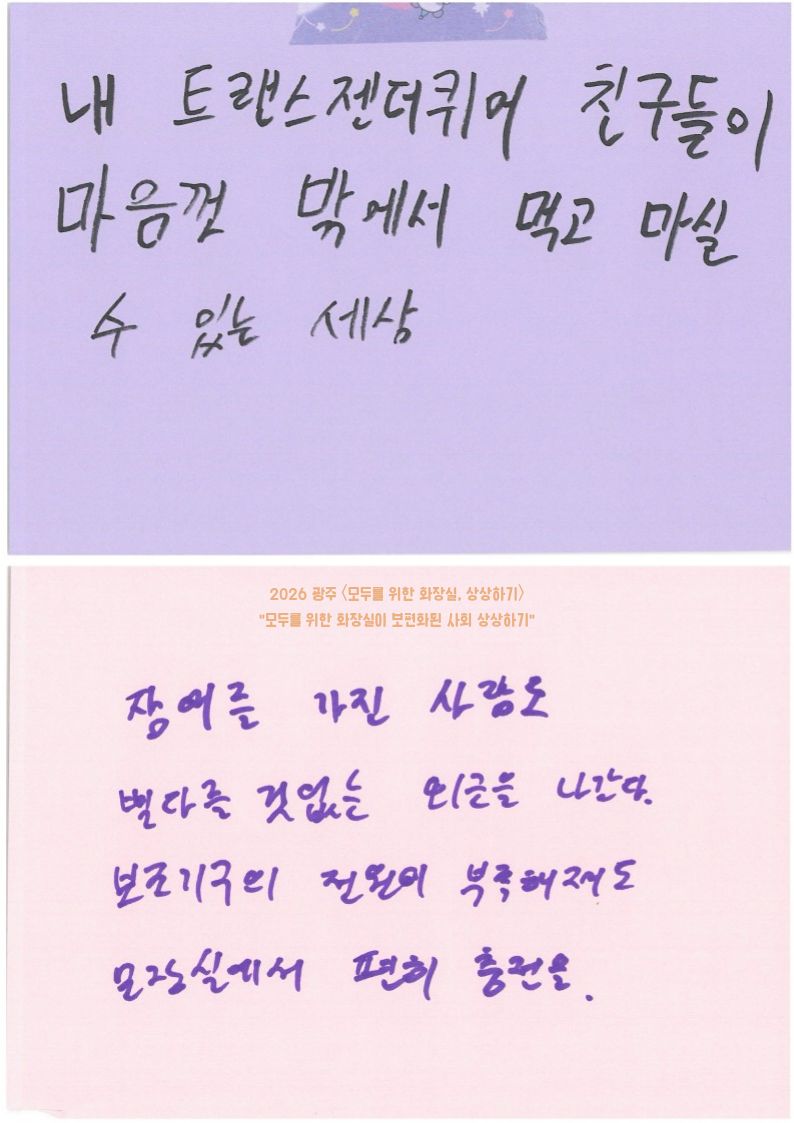 내 트랜스젠더퀴어 친구들이
마음껏 밖에서 먹고 마실
수 있는 세상
2026 광주 <모두를 위한 화장실, 상상하기>
"모두를 위한 화장실이 보편화된 사회 상상하기"
장애를 가진 사람도
별다를 것없는 외근을 나간다.
보조기구의 전원이 부족해져도
모장실에서 편히 충전을.